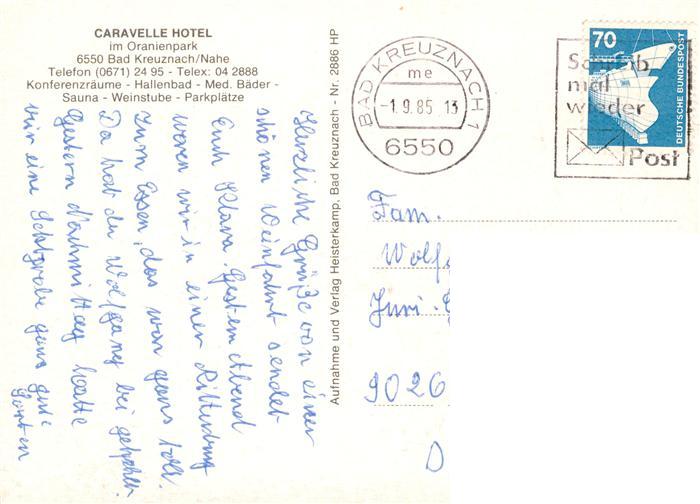 CARAVELLE HOTEL
im Oranienpark
6550 Bad Kreuznach/Nahe
Telefon (0671) 24 95 - Telex: 04 2888
Konferenzräume - Hallenbad - Med. Bäder -
Sauna - Weinstube - Parkplätze
Herzliche Grüße von einer
schönen Weinfahrt sendet
Euch Klara. Gestern Abend
waren wir in einer Ritterburg
zum Essen, das war ganz toll.
Da hat der Wolfgang bei gehalten.
Gestern Nachmittag hatte
wir eine Sektprobe ganz gute
Sorten
Aufnahme und Verlag Heisterkamp, Bad Kreuznach - Nr. 2886 HP
BAD KREUZNACH 1
me
-1.9.85 13
6550
Schreib
mal
wieder
Post
70
DEUTSCHE BUNDESPOST
Fam.
Wolf
Juri-
9026
D